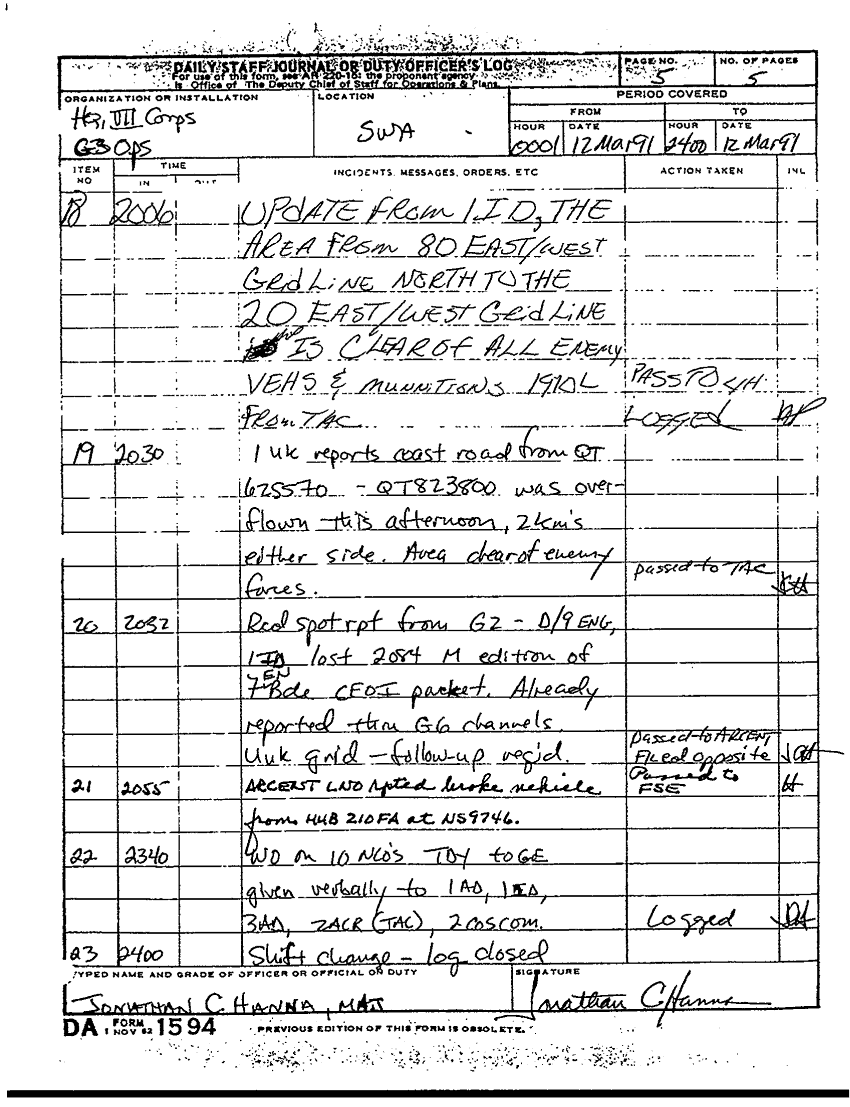 DAILY STAFF JOURNAL OR DUTY OFFICER'S LOG
For use of this form, see AR 220-15; the proponent agency
is Office of The Deputy Chief of Staff for Operations & Plans.
PAGE NO.
5
NO. OF PAGES
5
ORGANIZATION OR INSTALLATION
HQ, VII Corps
G3 Ops
LOCATION
SWA
PERIOD COVERED
FROM
TO
HOUR
DATE
HOUR
DATE
0001
12 Mar 91
2400
12 Mar 91
ITEM NO
TIME
IN
OUT
INCIDENTS, MESSAGES, ORDERS, ETC
ACTION TAKEN
INL
18 2006 UPDATE FROM 1 I D, THE
AREA FROM 80 EAST/WEST
GRid LiNE NORTH TO THE
20 EAST/WEST GRid LiNE
IS CLEAR OF ALL ENEMY
VEHS & MUNNITIONS 1910L PASS TO
FROM TAC LOGGED
19 2030 1 UK reports coast road from QT
625570 - QT823800 was over-
flown this afternoon, 2 km's
either side. Area clear of enemy
forces. passed to TAC
20 2032 Rcd spot rpt from G2 - D/9 ENG,
1ID lost 2084 M edition of
7th EN Bde CEOI packet. Already
reported thru G6 channels.
Unk grid - follow-up req'd. passed to ARCENT,
Filed opposite
21 2055 ARCENT LNO rpted broke vehicle Passed to FSE
from HHB 210FA at NS9746.
22 2340 WO on 10 NCO's TDY to GE
given verbally to 1AD, 1ID,
3AD, 2ACR (TAC), 2 COSCOM. Logged
23 2400 Shift change - log closed
TYPED NAME AND GRADE OF OFFICER OR OFFICIAL ON DUTY
SIGNATURE
JONATHAN C HANNA, MAJ
Jonathan C Hanna
DA FORM 1 NOV 62 1594
PREVIOUS EDITION OF THIS FORM IS OBSOLETE.